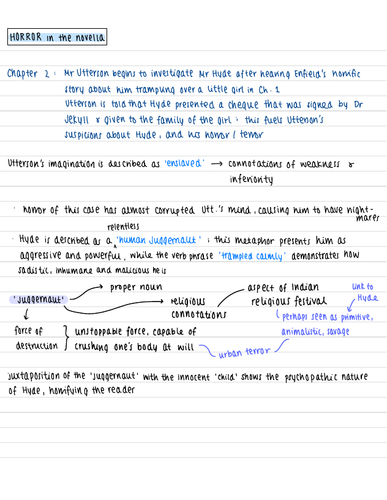 HORROR in the novella
Chapter 2 : Mr Utterson begins to investigate Mr Hyde after hearing Enfield's horrific
story about him trampling over a little girl in Ch. 1
Utterson is told that Hyde presented a cheque that was signed by Dr
Jekyll & given to the family of the girl ; this fuels Utterson's
suspicions about Hyde, and his horror / terror
Utterson's imagination is described as 'enslaved' → connotations of weakness &
inferiority
· horror of this case has almost corrupted Utt.'s mind, causing him to have night-
mares
relentless
· Hyde is described as a 'human Juggernaut' ; this metaphor presents him as
aggressive and powerful, while the verb phrase 'trampled calmly' demonstrates how
sadistic, inhumane and malicious he is
'Juggernaut'
proper noun
religious
connotations
aspect of Indian
religious festival
link to
Hyde
perhaps seen as primitive,
animalistic, savage
urban terror
force of
destruction
unstoppable force, capable of
crushing one's body at will
Juxtaposition of the 'Juggernaut' with the innocent 'child' shows the psychopathic nature
of Hyde, horrifying the reader